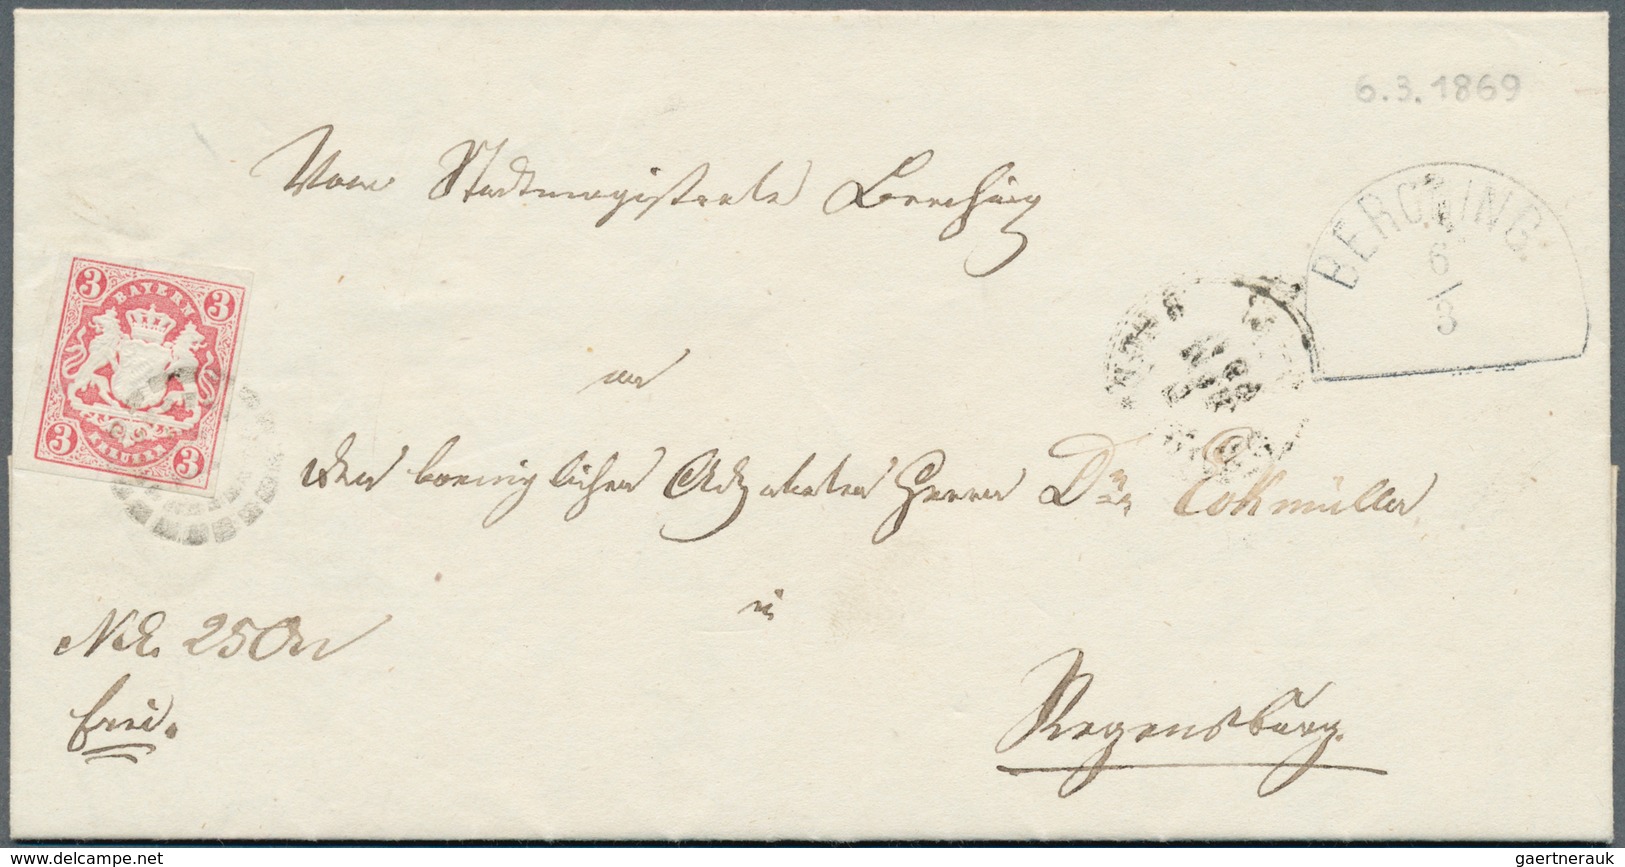 6.3.1869
Vom Stadtmagistrate Berching
BERCHING.
6
3
3 BAYERN 3
3 KREUZER 3
an
den koeniglichen Advokaten Herrn Dr.
in
N.E. 250
frei.
Regensburg.
www.delcampe.net
gaertnerauk